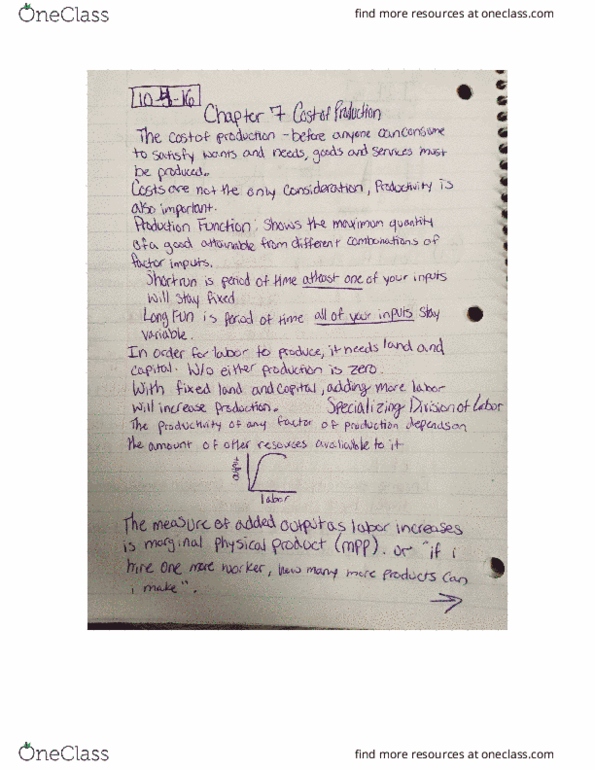 OneClass
find more resources at oneclass.com
10-4-16
Chapter 7 Cost of Production
The cost of production - before anyone can consume
to satisfy wants and needs, goods and services must
be produced.
Costs are not the only consideration, Productivity is
also important.
Production Function: Shows the maximum quantity
of a good attainable from different combonations of
factor imputs.
Short run is period of time atleast one of your inputs
will stay fixed.
Long Fun is period of time all of your inputs stay
variable.
In order for labor to produce, it needs land and
capital. W/o either production is zero.
With fixed land and capital, adding more labor
will increase production. Specializing Division of Labor
The productivity of any factor of production depends on
the amount of other resources available to it
output
labor
The measure of added output as labor increases
is marginal physical product (mpp). or "if i
hire one more worker, how many more products can
i make".
OneClass
find more resources at oneclass.com